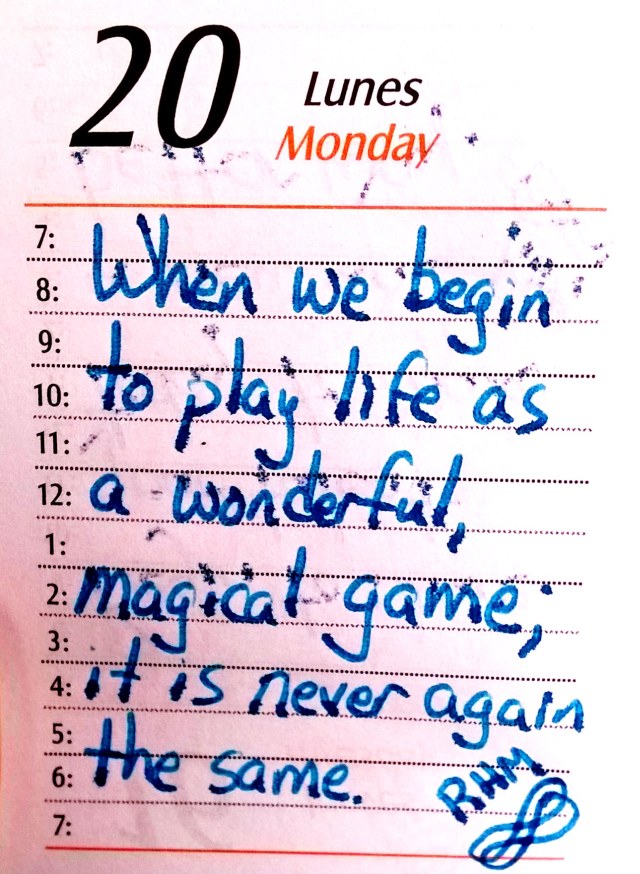 20 Lunes
Monday
7:
When we begin
8:
9:
to play life as
10:
11:
a wonderful,
12:
1:
magical game;
2:
3:
it is never again
4:
5:
the same.
6:
RHM
7: